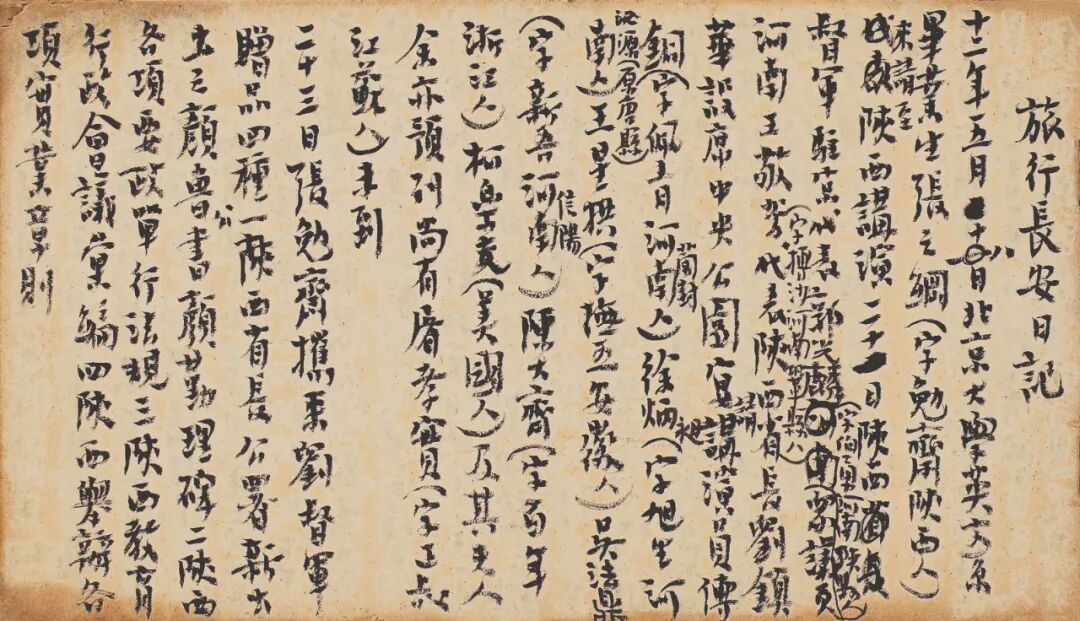 旅行長安日記
十二年五月十八日北京大學英文系
畢業生張之綱(字勉齋陝西人)
來請至陝西講演二十一日陝西省長
督軍駐京代表郭光麟(字伯勇河南陝縣人)衆議員
河南王敬芳(字摶沙河南鞏縣人)代表陝西省長劉鎮
華設席中央公園宴請講演員傅
銅(字佩青河南蘭封人)徐炳昶(字旭生河
南沘源(原唐縣)人)王星拱(字撫五安徽人)吳法鼎
(字新吾河南信陽人)陳大齊(字百年
浙江人)柯樂文(美國人)及其夫人
余亦預列尚有屠孝實(字正叔
江蘇人)未到
二十三日張勉齋攜來劉督軍
贈品四種一陝西省長公署新出
土之顏魯公書顏勤理碑二陝西
各項要政單行法規三陝西教育
行政會議彙編四陝西興辦各
項實業章則